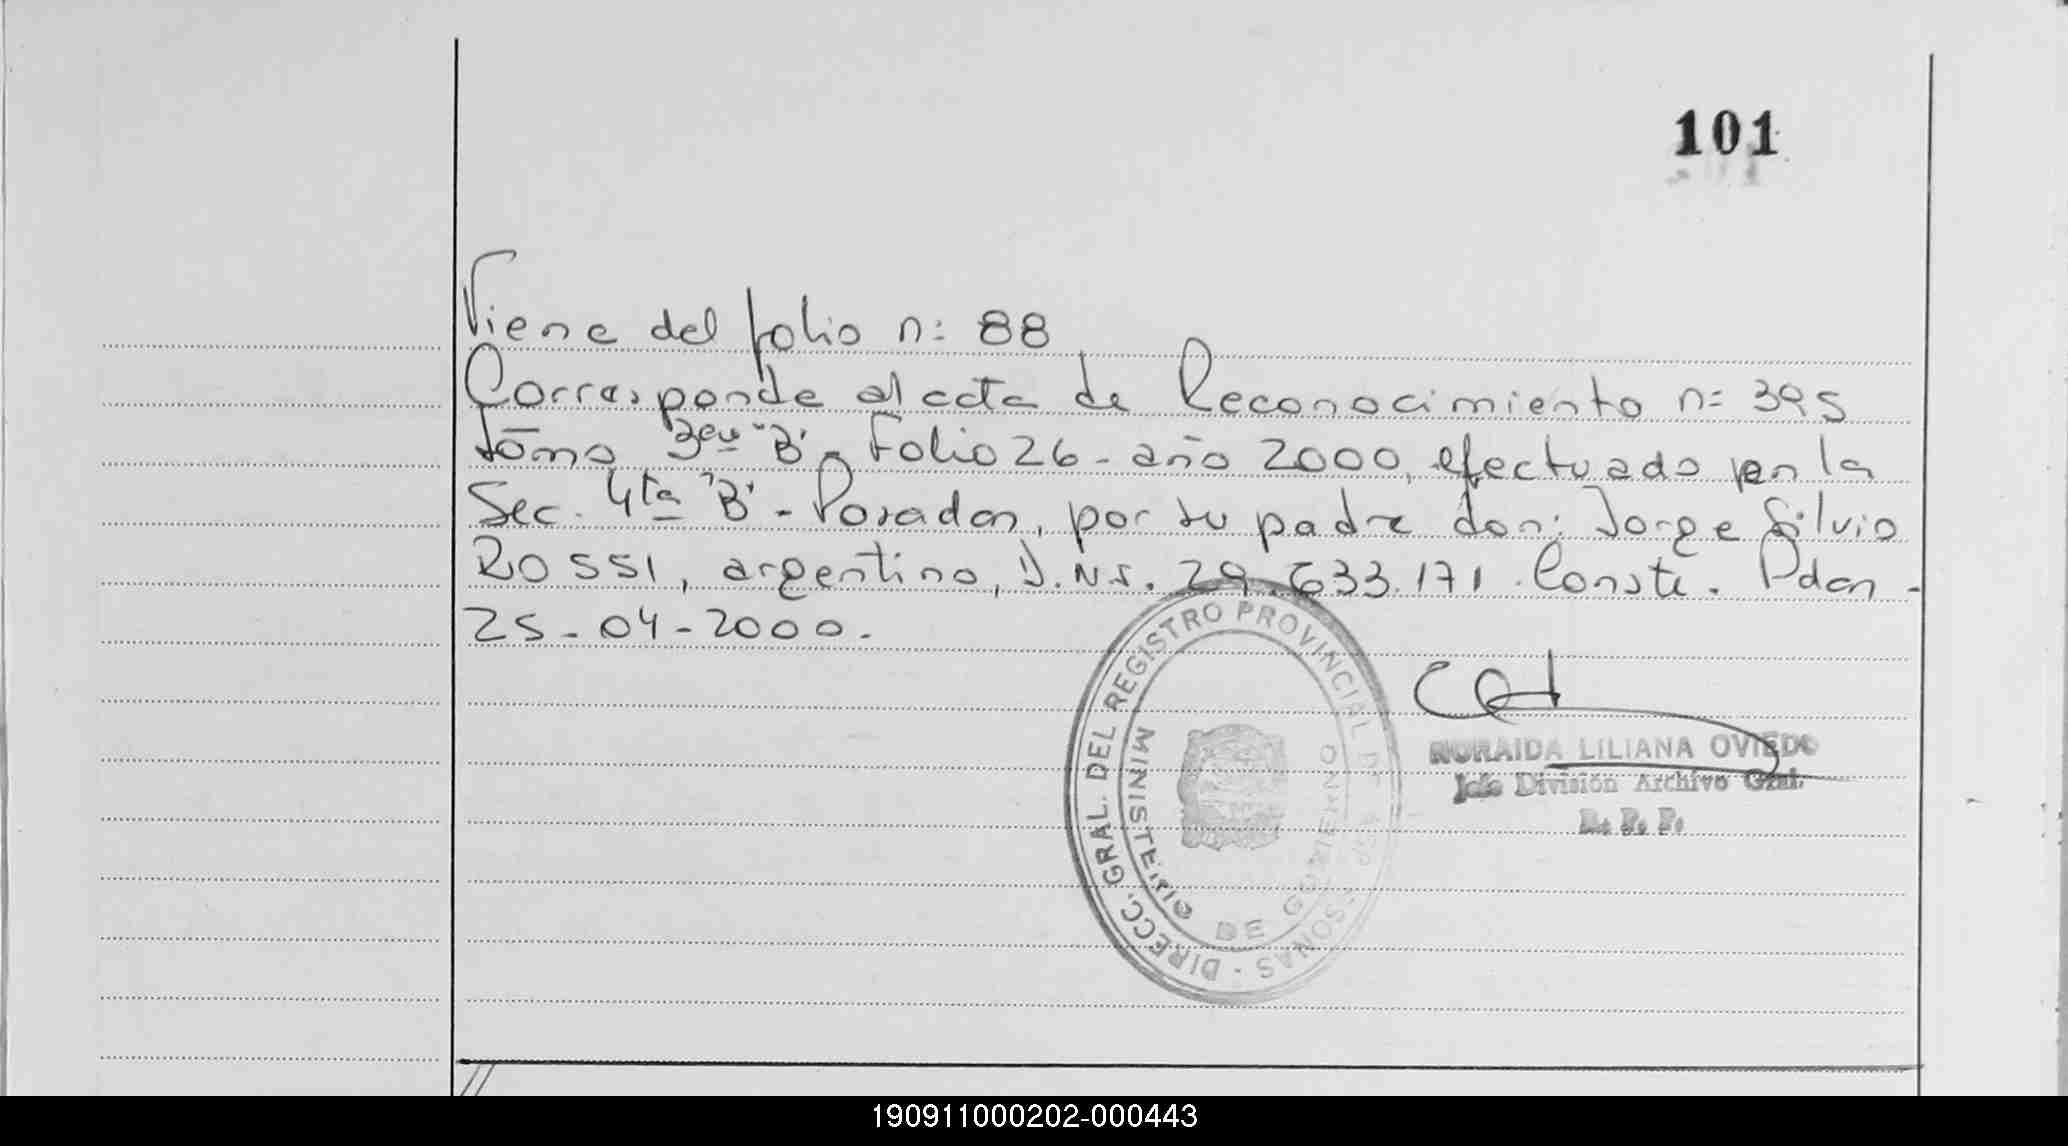 101
Viene del folio n: 88
Corresponde al acta de Reconocimiento n: 395
tomo 3ero "B" - Folio 26 - año 2000, efectuado en la
Sec. 4ta "B" - Posadas, por su padre don: Jorge Silvio
ROSSI, argentino, D.N.I. 29.633.171. Conste. Pdas -
25-04-2000.
DIRECC. GRAL. DEL REGISTRO PROVINCIAL DE PERSONAS -
MINISTERIO DE GOBIERNO
NORAIDA LILIANA OVIEDO
Jefe División Archivo Gral.
R. P. P.
190911000202-000443